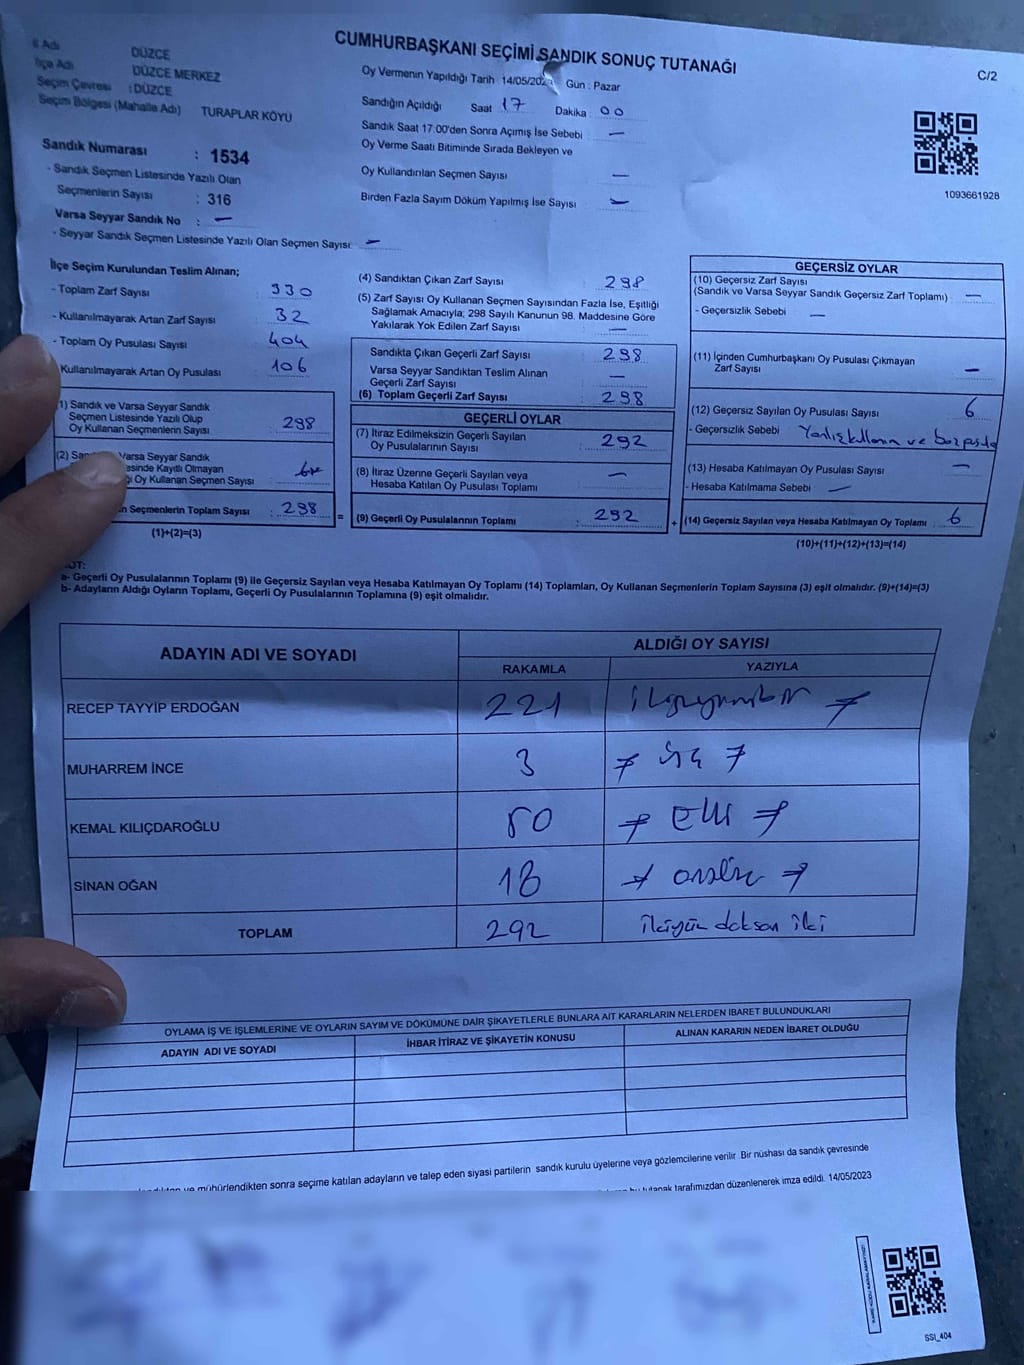 CUMHURBAŞKANI SEÇİMİ SANDIK SONUÇ TUTANAĞI
C/2
İl Adı DÜZCE
İlçe Adı DÜZCE MERKEZ
Seçim Çevresi : DÜZCE
Seçim Bölgesi (Mahalle Adı) TURAPLAR KÖYÜ
Oy Vermenin Yapıldığı Tarih 14/05/2023 Gün : Pazar
Sandığın Açıldığı Saat 17 Dakika 00
Sandık Saat 17:00'den Sonra Açımış İse Sebebi —
Oy Verme Saati Bitiminde Sırada Bekleyen ve
Oy Kullandırılan Seçmen Sayısı —
Birden Fazla Sayım Döküm Yapılmış İse Sayısı —
1093661928
Sandık Numarası : 1534
- Sandık Seçmen Listesinde Yazılı Olan
Seçmenlerin Sayısı : 316
Varsa Seyyar Sandık No : —
- Seyyar Sandık Seçmen Listesinde Yazılı Olan Seçmen Sayısı: —
İlçe Seçim Kurulundan Teslim Alınan;
- Toplam Zarf Sayısı : 330
- Kullanılmayarak Artan Zarf Sayısı : 32
- Toplam Oy Pusulası Sayısı : 404
Kullanılmayarak Artan Oy Pusulası : 106
(1) Sandık ve Varsa Seyyar Sandık
Seçmen Listesinde Yazılı Olup
Oy Kullanan Seçmenlerin Sayısı : 298
(2) Varsa Seyyar Sandık
Kayıtlı Olmayan
Oy Kullanan Seçmen Sayısı
Seçmenlerin Toplam Sayısı : 298
(1)+(2)=(3)
(4) Sandıktan Çıkan Zarf Sayısı : 298
(5) Zarf Sayısı Oy Kullanan Seçmen Sayısından Fazla İse, Eşitliği
Sağlamak Amacıyla; 298 Sayılı Kanunun 98. Maddesine Göre
Yakılarak Yok Edilen Zarf Sayısı : —
Sandıkta Çıkan Geçerli Zarf Sayısı : 298
Varsa Seyyar Sandıktan Teslim Alınan
Geçerli Zarf Sayısı : —
(6) Toplam Geçerli Zarf Sayısı : 298
GEÇERLİ OYLAR
(7) İtiraz Edilmeksizin Geçerli Sayılan
Oy Pusulalarının Sayısı : 292
(8) İtiraz Üzerine Geçerli Sayılan veya
Hesaba Katılan Oy Pusulası Toplamı : —
= (9) Geçerli Oy Pusulalarının Toplamı : 292
GEÇERSİZ OYLAR
(10) Geçersiz Zarf Sayısı
(Sandık ve Varsa Seyyar Sandık Geçersiz Zarf Toplamı) : —
- Geçersizlik Sebebi —
(11) İçinden Cumhurbaşkanı Oy Pusulası Çıkmayan
Zarf Sayısı —
(12) Geçersiz Sayılan Oy Pusulası Sayısı 6
- Geçersizlik Sebebi Yanlış ve
(13) Hesaba Katılmayan Oy Pusulası Sayısı —
- Hesaba Katılmama Sebebi —
+ (14) Geçersiz Sayılan veya Hesaba Katılmayan Oy Toplamı : 6
(10)+(11)+(12)+(13)=(14)
a- Geçerli Oy Pusulalarının Toplamı (9) ile Geçersiz Sayılan veya Hesaba Katılmayan Oy Toplamı (14) Toplamları, Oy Kullanan Seçmenlerin Toplam Sayısına (3) eşit olmalıdır. (9)+(14)=(3)
b- Adayların Aldığı Oyların Toplamı, Geçerli Oy Pusulalarının Toplamına (9) eşit olmalıdır.
ADAYIN ADI VE SOYADI ALDIĞI OY SAYISI
RAKAMLA YAZIYLA
RECEP TAYYİP ERDOĞAN 221
MUHARREM İNCE 3 üç
KEMAL KILIÇDAROĞLU 50 Elli
SİNAN OĞAN 18 onsekiz
TOPLAM 292 ikiyüz doksan iki
OYLAMA İŞ VE İŞLEMLERİNE VE OYLARIN SAYIM VE DÖKÜMÜNE DAİR ŞİKAYETLERLE BUNLARA AİT KARARLARIN NELERDEN İBARET BULUNDUKLARI
ADAYIN ADI VE SOYADI İHBAR İTİRAZ VE ŞİKAYETİN KONUSU ALINAN KARARIN NEDEN İBARET OLDUĞU
ve mühürlendikten sonra seçime katılan adayların ve talep eden siyasi partilerin sandık kurulu üyelerine veya gözlemcilerine verilir. Bir nüshası da sandık çevresinde
tutanak tarafımızdan düzenlenerek imza edildi. 14/05/2023
SSI_404